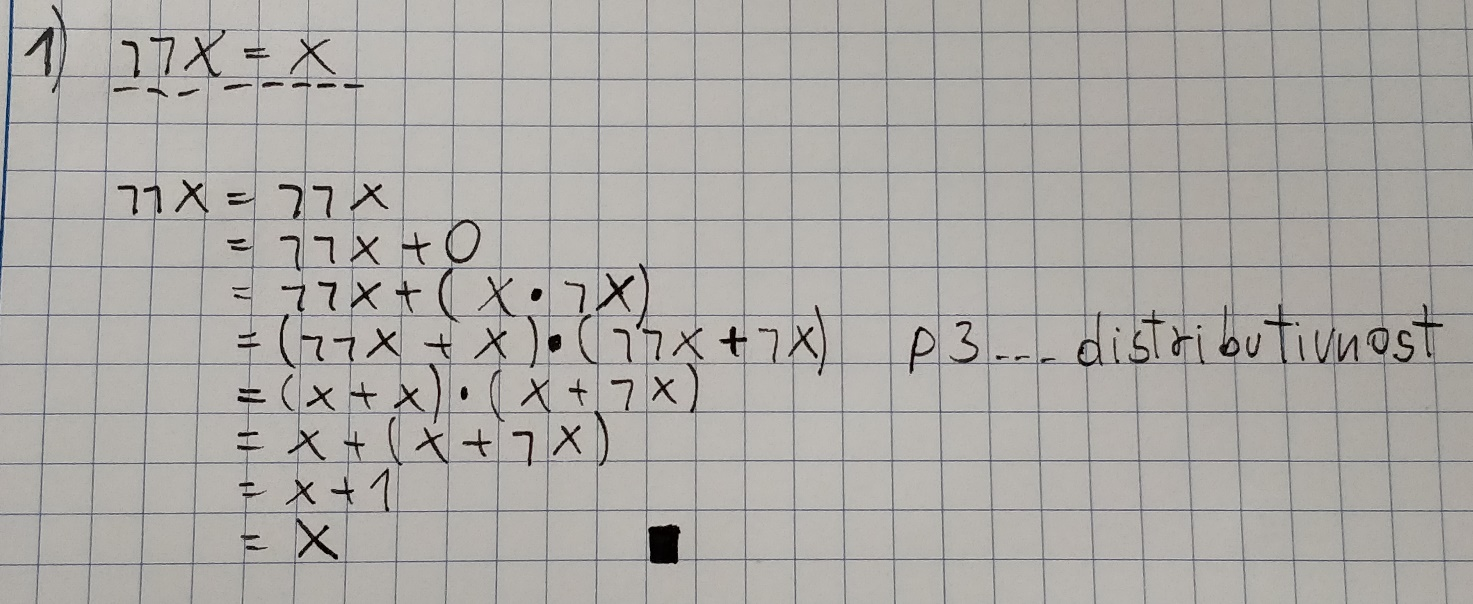 1) ¬¬x = x
¬¬x = ¬¬x
= ¬¬x + 0
= ¬¬x + (x · ¬x)
= (¬¬x + x) · (¬¬x + ¬x) p3... distributivnost
= (x + x) · (x + ¬x)
= x + (x + ¬x)
= x + 1
= x